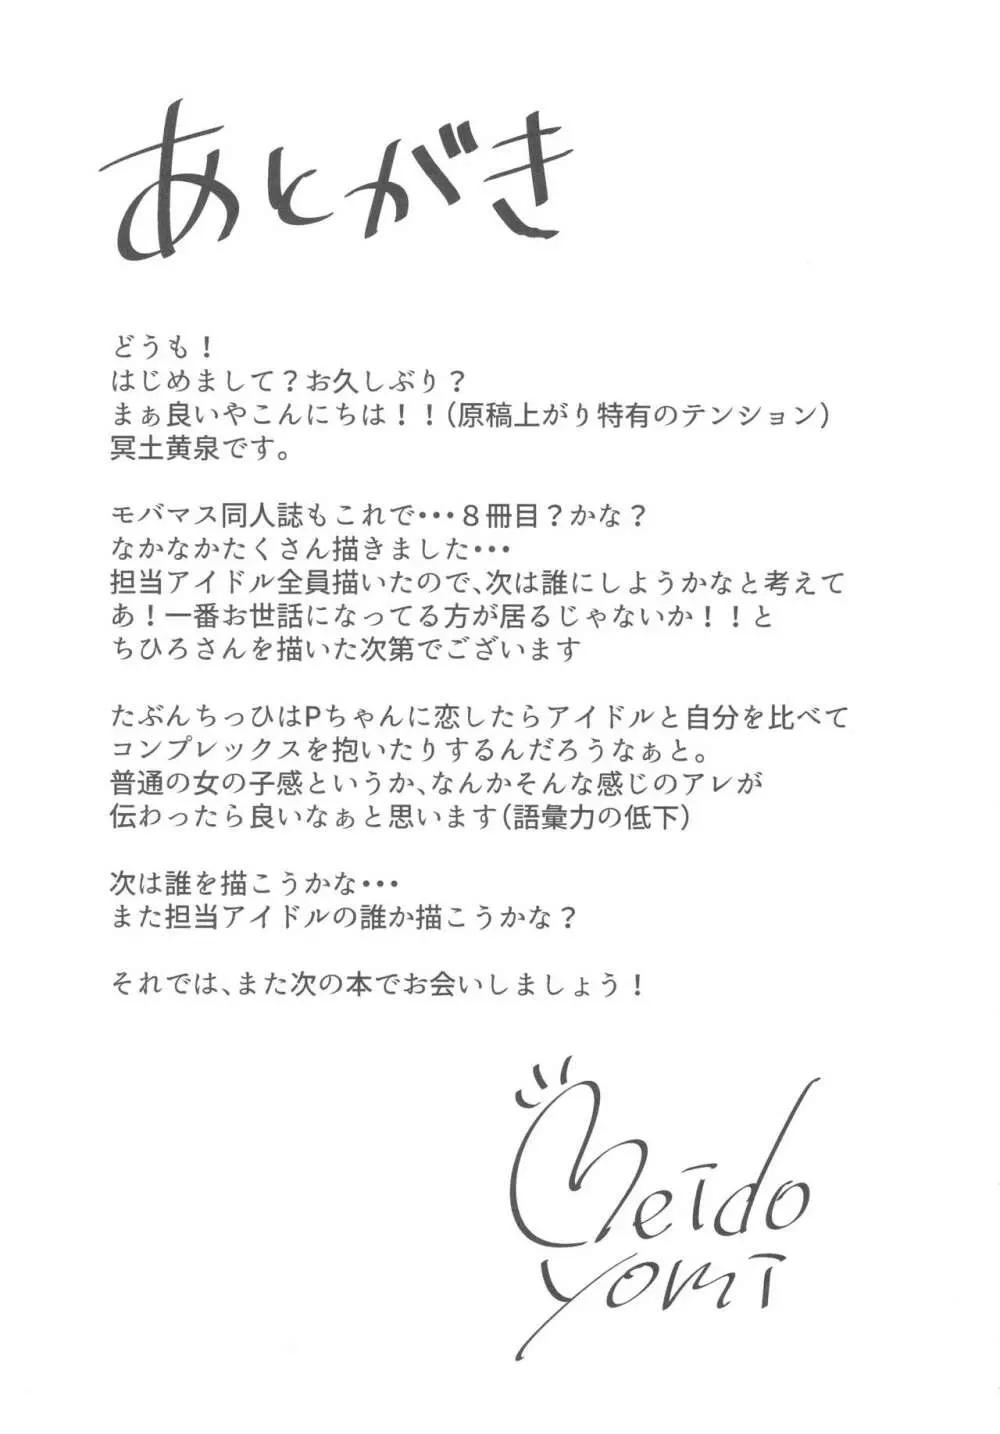 あとがき
どうも！
はじめまして？お久しぶり？
まぁ良いやこんにちは！！（原稿上がり特有のテンション）
冥土黄泉です。
モバマス同人誌もこれで・・・８冊目？かな？
なかなかたくさん描きました・・・
担当アイドル全員描いたので、次は誰にしようかなと考えて
あ！一番お世話になってる方が居るじゃないか！！と
ちひろさんを描いた次第でございます
たぶんちっひはPちゃんに恋したらアイドルと自分を比べて
コンプレックスを抱いたりするんだろうなぁと。
普通の女の子感というか、なんかそんな感じのアレが
伝わったら良いなぁと思います（語彙力の低下）
次は誰を描こうかな・・・
また担当アイドルの誰か描こうかな？
それでは、また次の本でお会いしましょう！
Meido
yomi